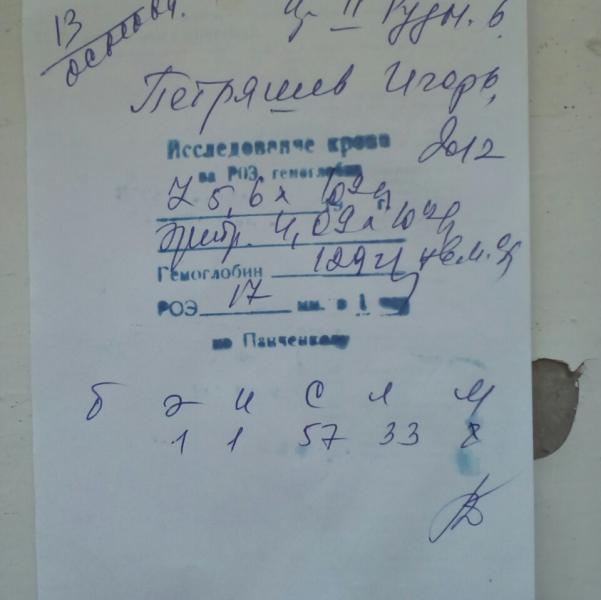 13
осмотр.
Петряшев Игорь,
2012
Исследование крови
на РОЭ, гемоглобин
L 5,6 х 10 9
Эритр. 4,09 х 10
Гемоглобин 129
РОЭ 17 мм. в 1
по Панченкову
б э п с л м
1 1 57 33 8